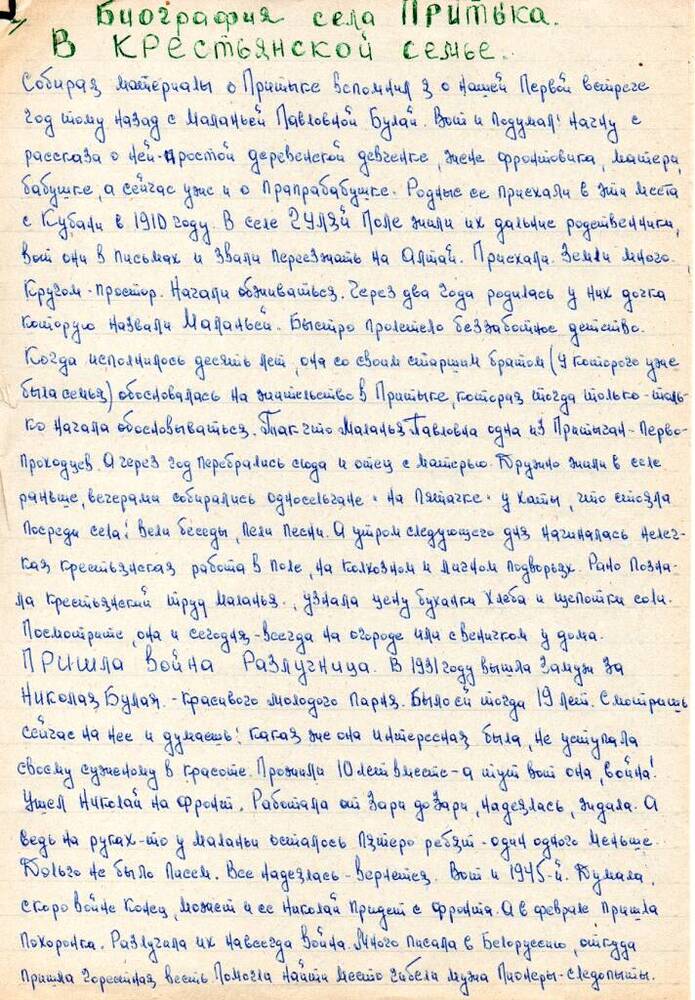 Биография села Притыка.
В крестьянской семье.
Собирая материалы о Притыке вспомнил я о нашей Первой встрече
год тому назад с Маланьей Павловной Булай. Вот и подумал! начну с
рассказа о ней-простой деревенской девченке, жене фронтовика, матери,
бабушке, а сейчас уже и о Прапрабабушке. Родные ее приехали в эти места
с Кубани в 1910 году. В селе Гуляй Поле жили их дальние родственники,
вот они в письмах и звали переезжать на Алтай. Приехали. Земли много.
Кругом-простор. Начали обживаться. Через два года родилась у них дочка
которую назвали Маланьей. Быстро пролетело беззаботное детство.
Когда исполнилось десять лет, она со своим старшим братом (у которого уже
была семья) обосновалась на жительство в Притыке, которая тогда только-толь-
ко начала обосновываться. Так что Маланья Павловна одна из Притычан-Перво-
проходцев. А через год перебрались сюда и отец с матерью. Дружно жили в селе
раньше, вечерами собирались односельчане "на Пятачке" у хаты, что стояла
посреди села! Вели беседы, пели песни. А утром следующего дня начиналась нелег-
кая крестьянская работа в поле, на колхозном и личном подворьях. Рано Позна-
ла крестьянский труд Маланья., узнала цену буханки хлеба и щепотки соли.
Посмотрите, она и сегодня-всегда на огороде или с веничком у дома.
Пришла война Разлучница. В 1931 году вышла замуж за
Николая Булая.-красивого молодого парня. Было ей тогда 19 лет. Смотришь
сейчас на нее и думаешь! какая же она интересная была, не уступала
своему суженому в красоте. Прожили 10 лет вместе-а тут вот она, война!
Ушел Николай на фронт. Работала от зари до зари, надеялась, ждала. А
ведь на руках-то у Маланьи осталось пятеро ребят-один одного меньше.
Долго не было писем. Все надеялась-вернется. Вот и 1945-й. Думала,
скоро войне Конец, может и ее Николай придет с фронта. А в феврале пришла
похоронка. Разлучила их навсегда война. Много писала в Белоруссию, откуда
пришла горестная весть. Помогли найти место гибели мужа Пионеры-следопыты.